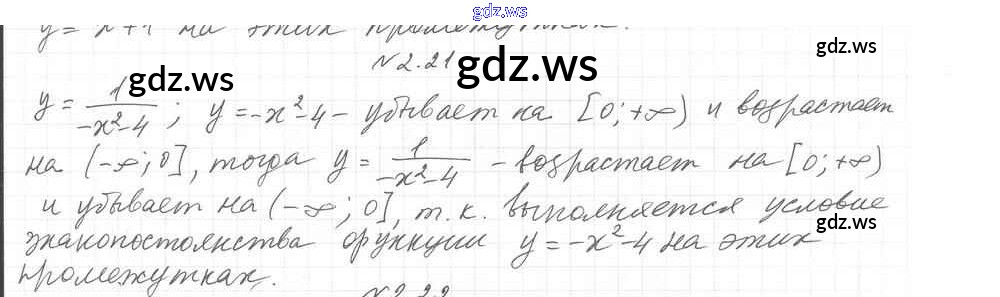 gdz.ws
y = x+1 на этих промежутках.
gdz.ws
№2.21
gdz.ws
gdz.ws
y = 1/(-x²-4); y = -x²-4 - убывает на [0;+∞) и возрастает
на (-∞;0], тогда y = 1/(-x²-4) - возрастает на [0;+∞)
и убывает на (-∞;0], т.к. выполняется условие
gdz.ws
знакопостоянства функции y = -x²-4 на этих
промежутках.
gdz.ws
№2.22